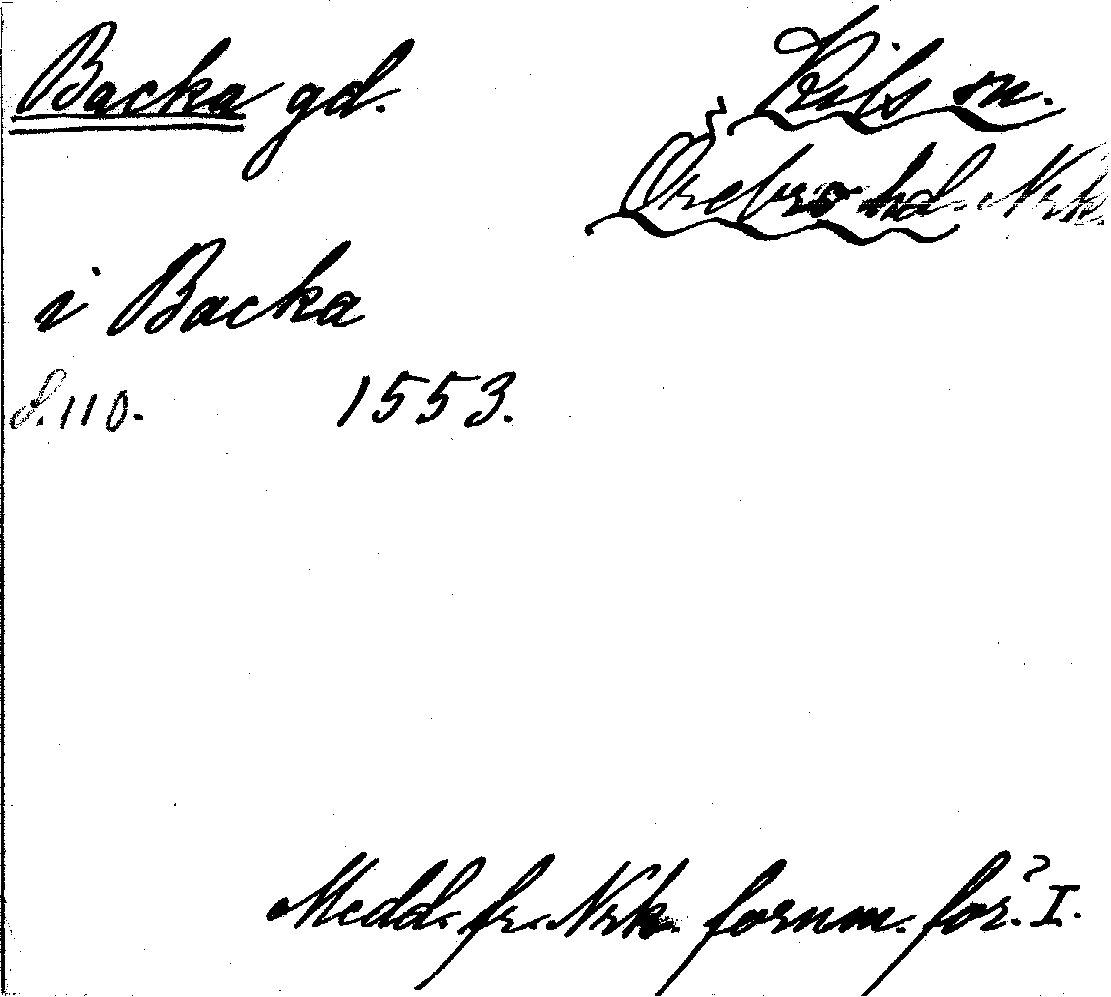 Backa gd.
Kils sn.
Örebro hd. Nrk.
i Backa
S. 110. 1553.
Medd. fr. Nrk. fornm. för. I.